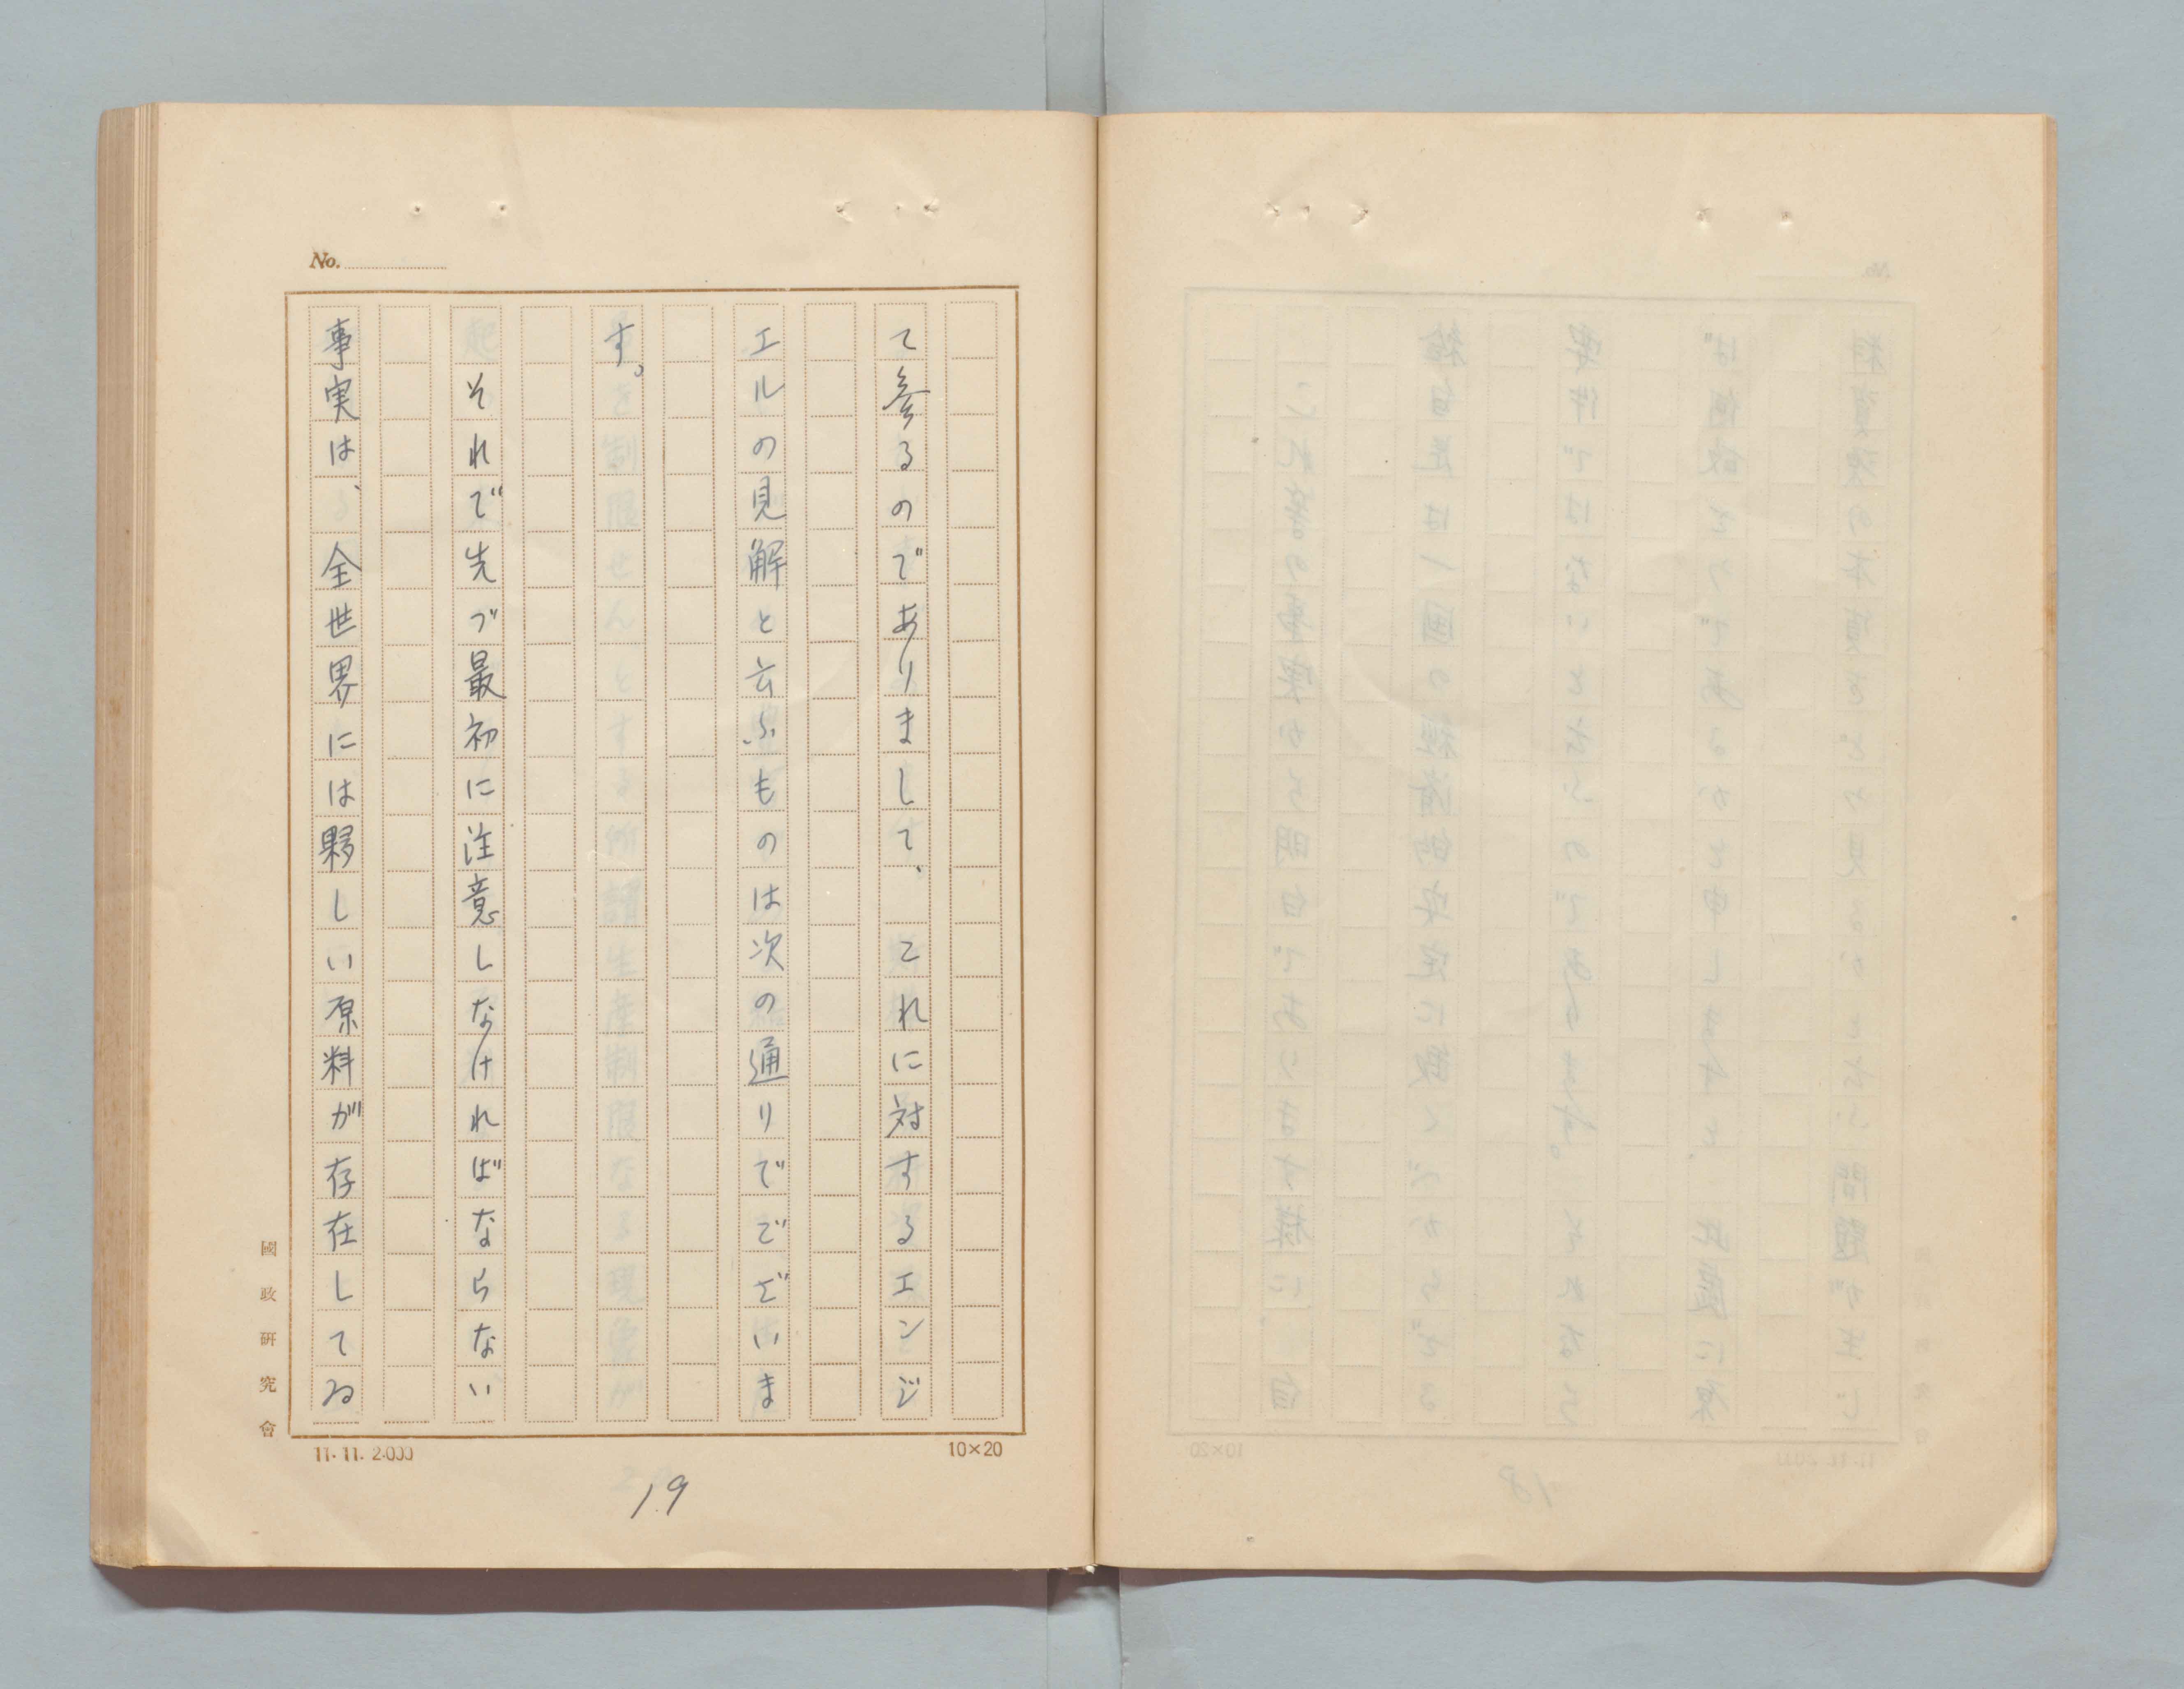 No.
て参るのでありまして、これに対するエンジ
エルの見解と云ふものは次の通りでございま
す。
それで先づ最初に注意しなければならない
事実は、全世界には夥しい原料が存在してゐ
國政研究會
11. 11. 2.000
10×20
19